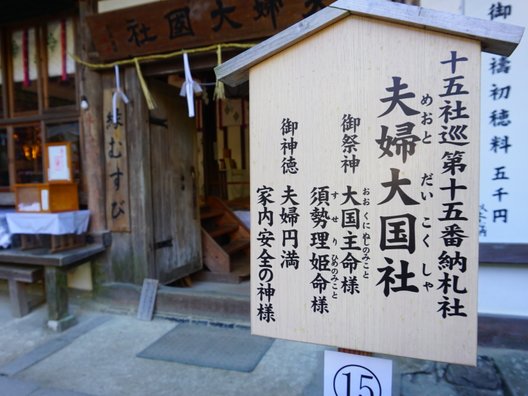 十五社巡第十五番納札社
夫婦大国社
めおとだいこくしゃ
御祭神 大国主命様
おおくにぬしのみこと
須勢理姫命様
すせりひめのみこと
御神徳 夫婦円満
家内安全の神様
⑮
夫婦大國社
縁むすび
御祷初穂料
五千円